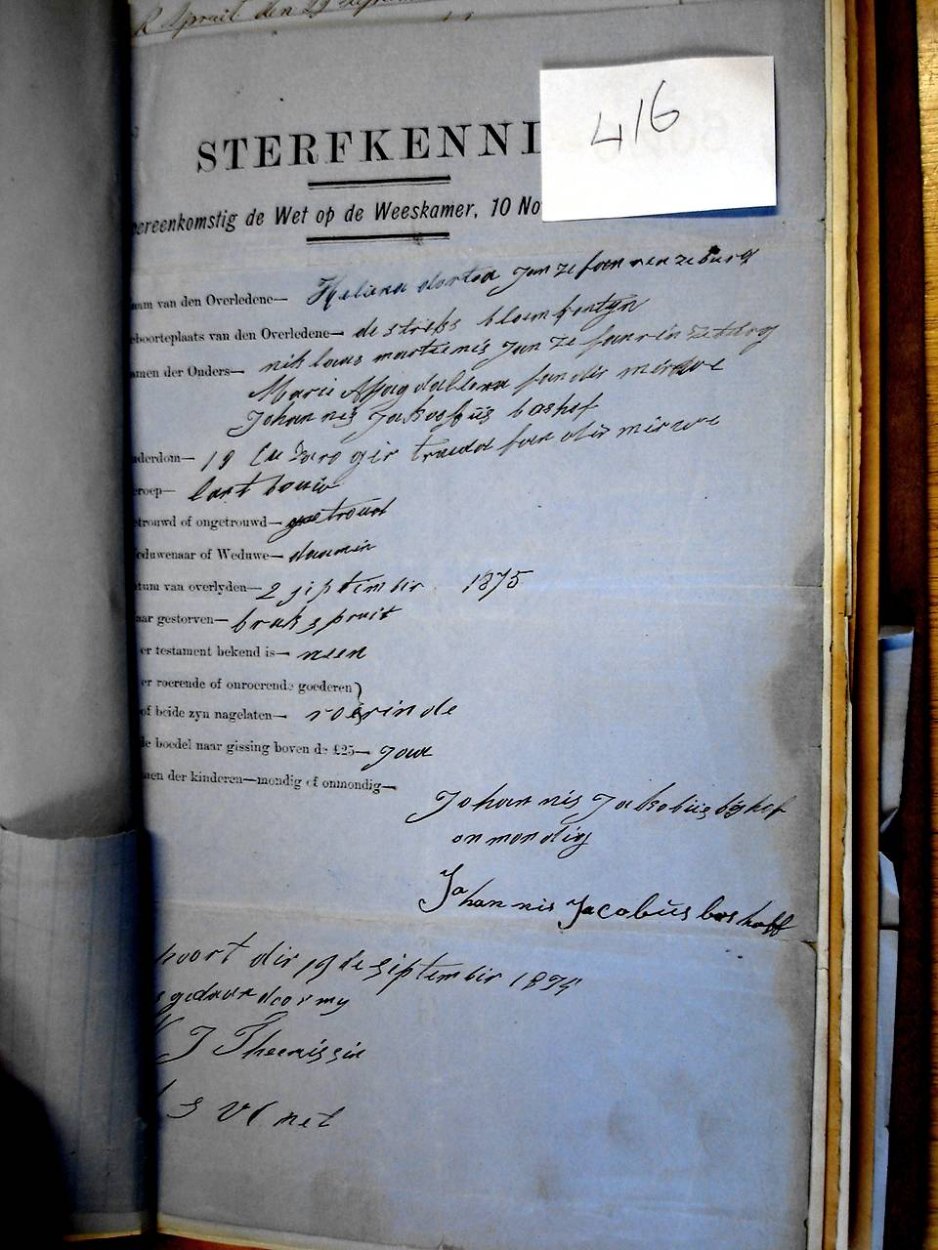 Spruit den 29
STERFKENNI
416
ereenkomstig de Wet op de Weeskamer, 10 No
am van den Overledene— Helena dortea Janze fan renzeburg
boorteplaats van den Overledene— de striks bloemfontyn
amen der Ouders— niklaas martienis Janze fan rinzeburg
Marie Magdallena fan dir mirwe
Johannis Jakoobüs boshof
derdom— 19 trouda fan dir mirwe
roep— lant bouw
trouwd of ongetrouwd— getroud
eduwenaar of Weduwe—
tum van overlyden— 2 siptembir 1875
ar gestorven— brakspruit
er testament bekend is— neen
er roerende of onroerende goederen)
of beide zyn nagelaten— roerinde
de boedel naar gissing boven de £25— Jaa
men der kinderen—mondig of onmondig—
Johannis Jakobüs boshof
onmondig
Johannis Jacobüs boshoff
poort dir 19 de siptembir 1875
gedaan door my
J Theenissin